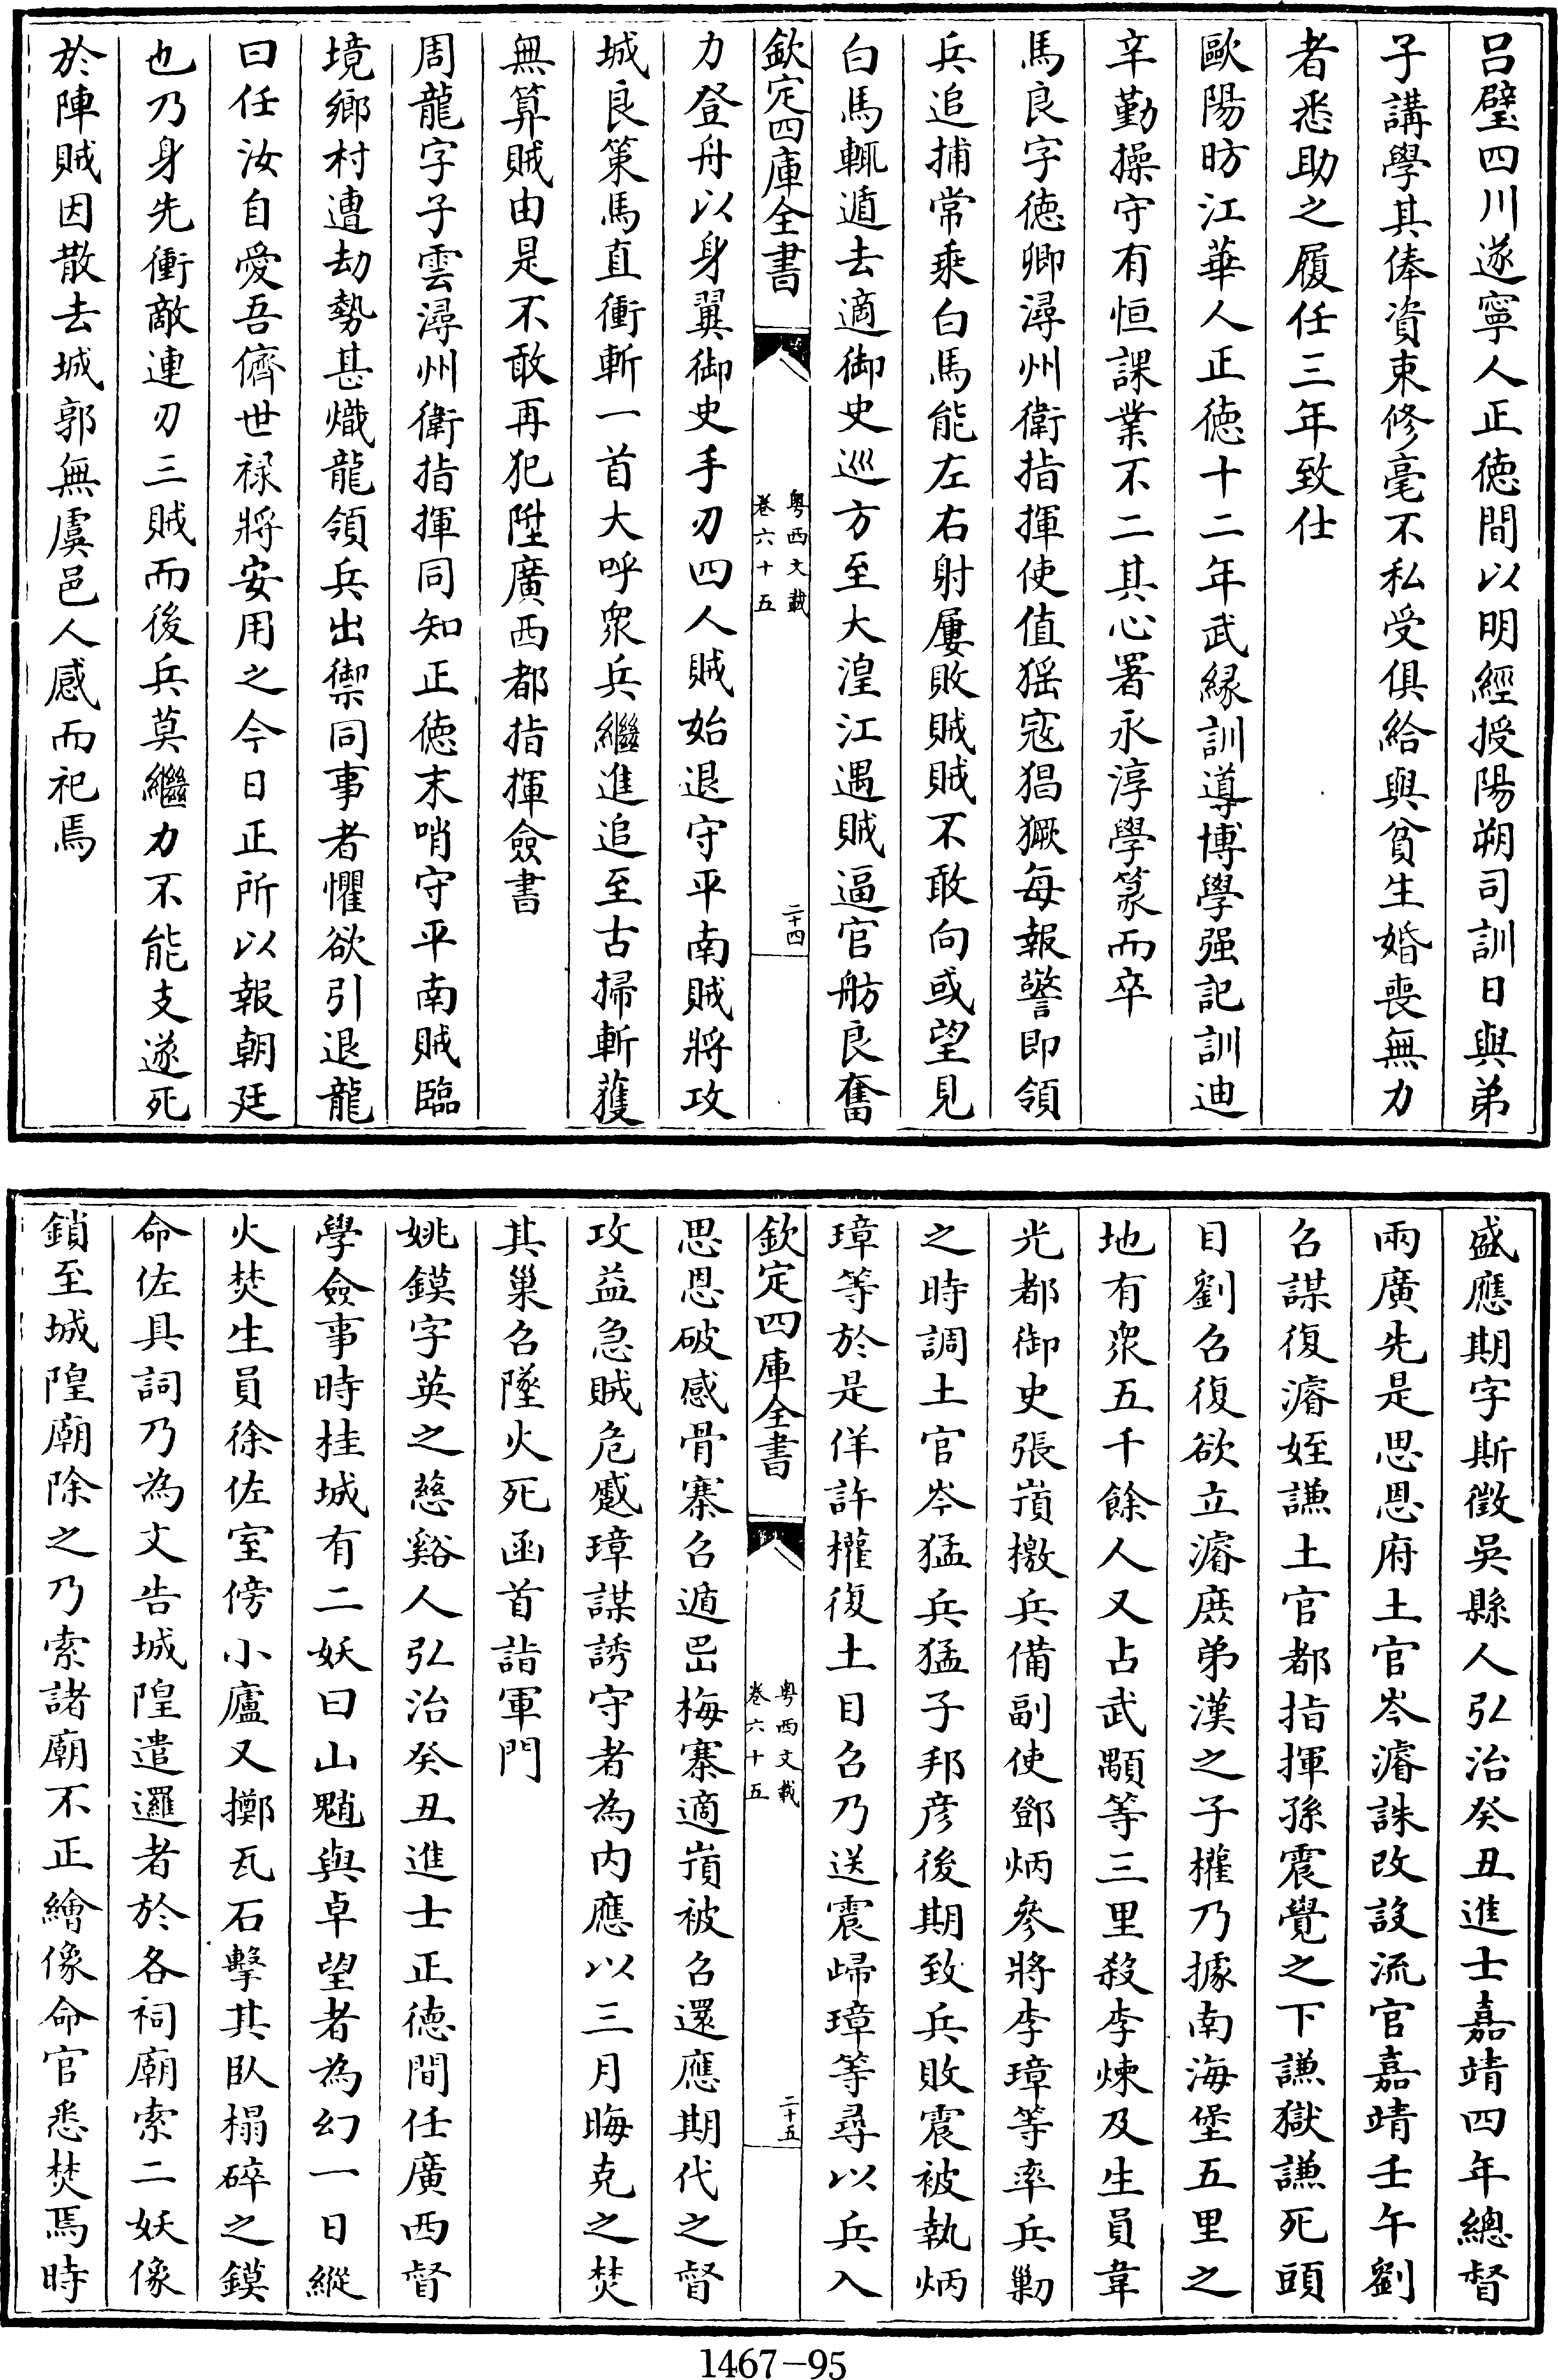 吕璧四川遂寧人正徳間以明經授陽朔司訓日與弟
子講學其俸資束修毫不私受俱給與貧生婚喪無力
者悉助之履任三年致仕
歐陽昉江華人正徳十二年武縁訓導博學强記訓迪
辛勤操守有恒課業不二其心署永淳學篆而卒
馬良字徳卿潯州衛指揮使值猺寇猖獗每報警即領
兵追捕常乗白馬能左右射屢敗賊賊不敢向或望見
白馬輒遁去適御史巡方至大湟江遇賊逼官舫良奮
欽定四庫全書
粤西文載
卷六十五
二十四
力登舟以身翼御史手刃四人賊始退守平南賊將攻
城良策馬直衝斬一首大呼衆兵繼進追至古掃斬獲
無算賊由是不敢再犯陞廣西都指揮僉書
周龍字子雲潯州衛指揮同知正徳末哨守平南賊臨
境鄉村遭劫勢甚熾龍領兵出禦同事者懼欲引退龍
曰任汝自愛吾儕世禄將安用之今日正所以報朝廷
也乃身先衝敵連刃三賊而後兵莫繼力不能支遂死
於陣賊因散去城郭無虞邑人感而祀焉
盛應期字斯徵吳縣人弘治癸丑進士嘉靖四年總督
兩廣先是思恩府土官岑濬誅改設流官嘉靖壬午劉
召謀復濬姪謙土官都指揮孫震覺之下謙獄謙死頭
目劉召復欲立濬庶弟漢之子權乃據南海堡五里之
地有衆五千餘人又占武顒等三里殺李煉及生員韋
光都御史張嵿檄兵備副使鄧炳參將李璋等率兵勦
之時調土官岑猛兵猛子邦彦後期致兵敗震被執炳
璋等於是佯許權復土目召乃送震歸璋等尋以兵入
欽定四庫全書
粤西文載
卷六十五
二十五
思恩破感骨寨召遁岜梅寨適嵿被召還應期代之督
攻益急賊危蹙璋謀誘守者為内應以三月晦克之焚
其巢召墜火死函首詣軍門
姚鏌字英之慈谿人弘治癸丑進士正徳間任廣西督
學僉事時桂城有二妖曰山魈與卓望者為幻一日縱
火焚生員徐佐室傍小廬又擲瓦石擊其臥榻碎之鏌
命佐具詞乃為文告城隍遣邏者於各祠廟索二妖像
鎖至城隍廟除之乃索諸廟不正繪像命官悉焚焉時
1467-95